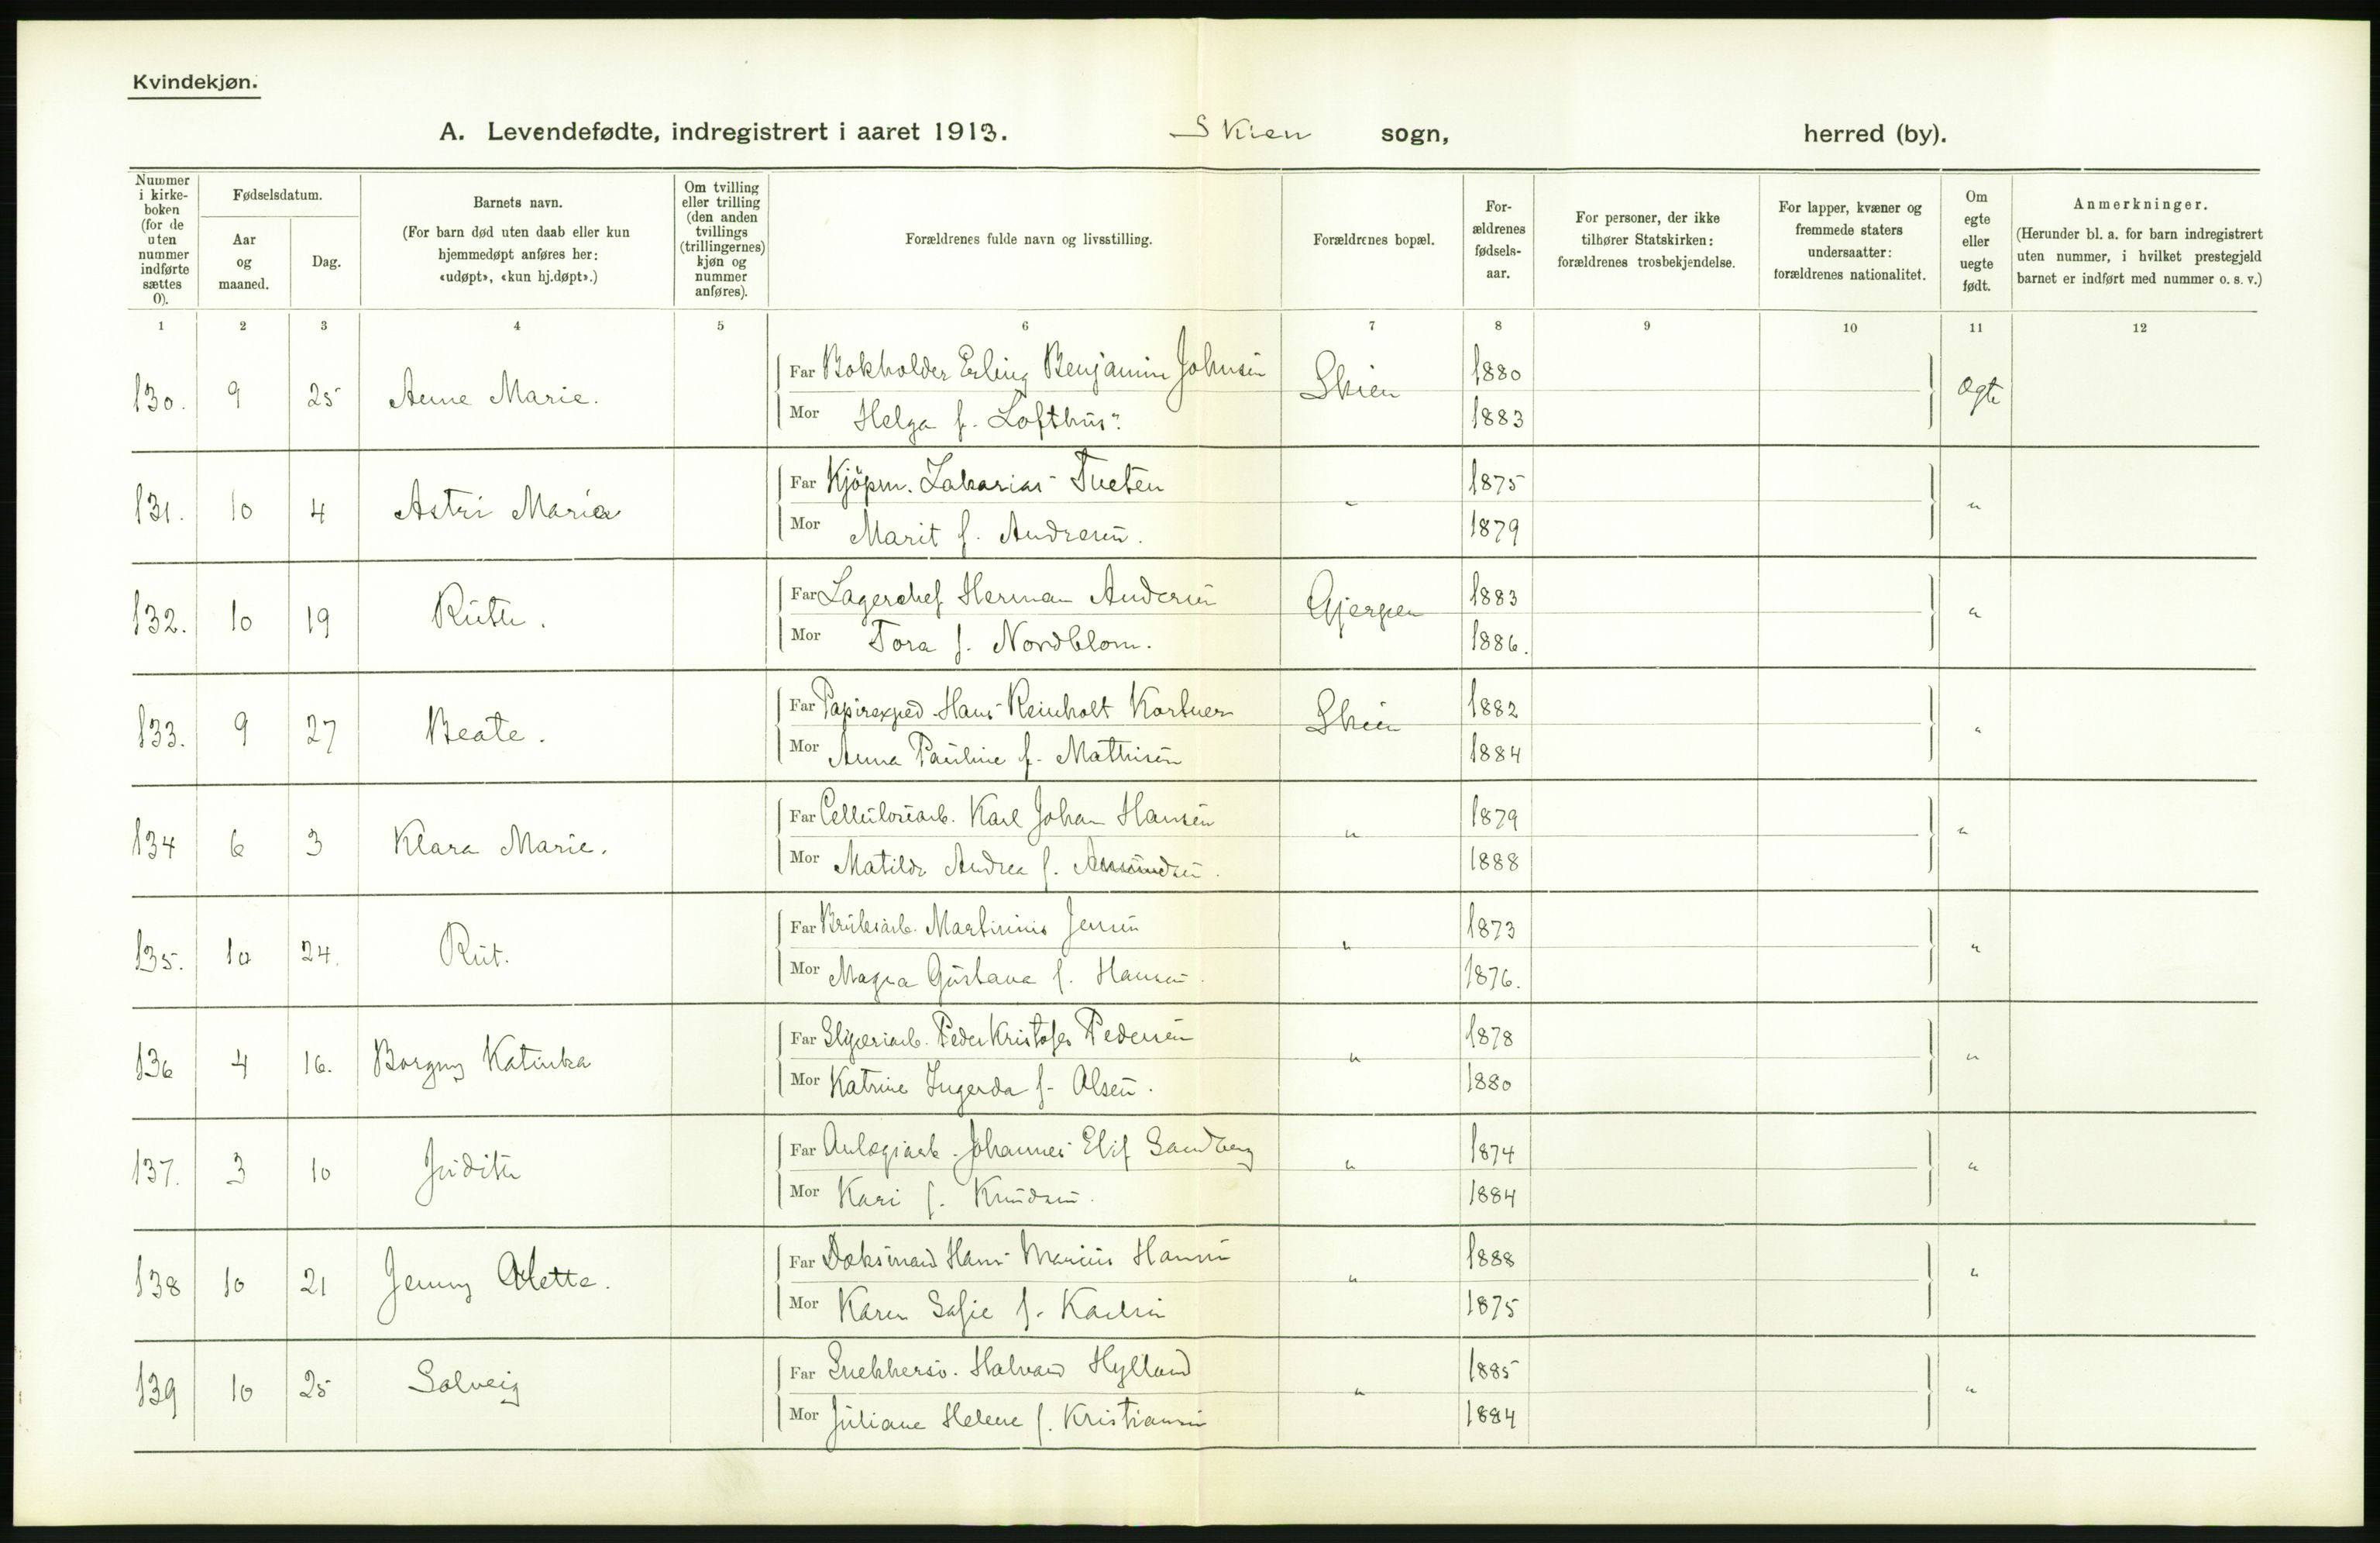 Kvindekjøn.
A. Levendefødte, indregistrert i aaret 1913. Skien sogn, herred (by).
Nummer i kirkeboken (for de uten nummer indførte sættes 0).
Fødselsdatum.
Aar og maaned.
Dag.
Barnets navn.
(For barn død uten daab eller kun hjemmedøpt anføres her: «udøpt», «kun hj.døpt».)
Om tvilling eller trilling (den anden tvillings (trillingernes) kjøn og nummer anføres).
Forældrenes fulde navn og livsstilling.
Forældrenes bopæl.
Forældrenes fødselsaar.
For personer, der ikke tilhører Statskirken: forældrenes trosbekjendelse.
For lapper, kvæner og fremmede staters undersaatter: forældrenes nationalitet.
Om egte eller uegte født.
Anmerkninger.
(Herunder bl. a. for barn indregistrert uten nummer, i hvilket prestegjeld barnet er indført med nummer o. s. v.)
1 2 3 4 5 6 7 8 9 10 11 12
130. 9 25 Anne Marie. Far Bokholder Erling Benjamin Johnsen Skien 1880 Ægte
Mor Helga f. Lofthus. 1883
131. 10 4 Astri Marie Far Kjöpm. Zakarias Tveten " 1875 "
Mor Marit f. Andresen. 1879
132. 10 19 Ruth. Far Lagerchef Herman Andersen Gjerpen 1883 "
Mor Tora f. Nordblom. 1886.
133. 9 27 Beate. Far Papirexped Hans Reinholt Kortner Skien 1882 "
Mor Anna Pauline f. Mathisen 1884
134 6 3 Klara Marie. Far Cellulosearb. Karl Johan Hansen " 1879 "
Mor Matilde Andrea f. 1888
135. 10 24. Rut. Far Bruksarb. Martinius Jensen " 1873 "
Mor Magna Gustava f. Hansen. 1876.
136 4 16. Borgny Katinka Far Sliperiarb. Peder Kristofer Pedersen " 1878 "
Mor Katrine Ingerda f. Olsen. 1880
137. 3 10 Judith Far Anlægsarb. Johannes Elif Sandberg " 1874 "
Mor Kari f. Knudsen. 1884
138 10 21 Jenny Alette. Far Hans Marius Hansen " 1888 "
Mor Karen Sofie f. Karlsen 1875
139 10 25 Solveig Far Snekkersv. Halvard Hylland " 1885 "
Mor Juliane Helene f. Kristiansen 1884